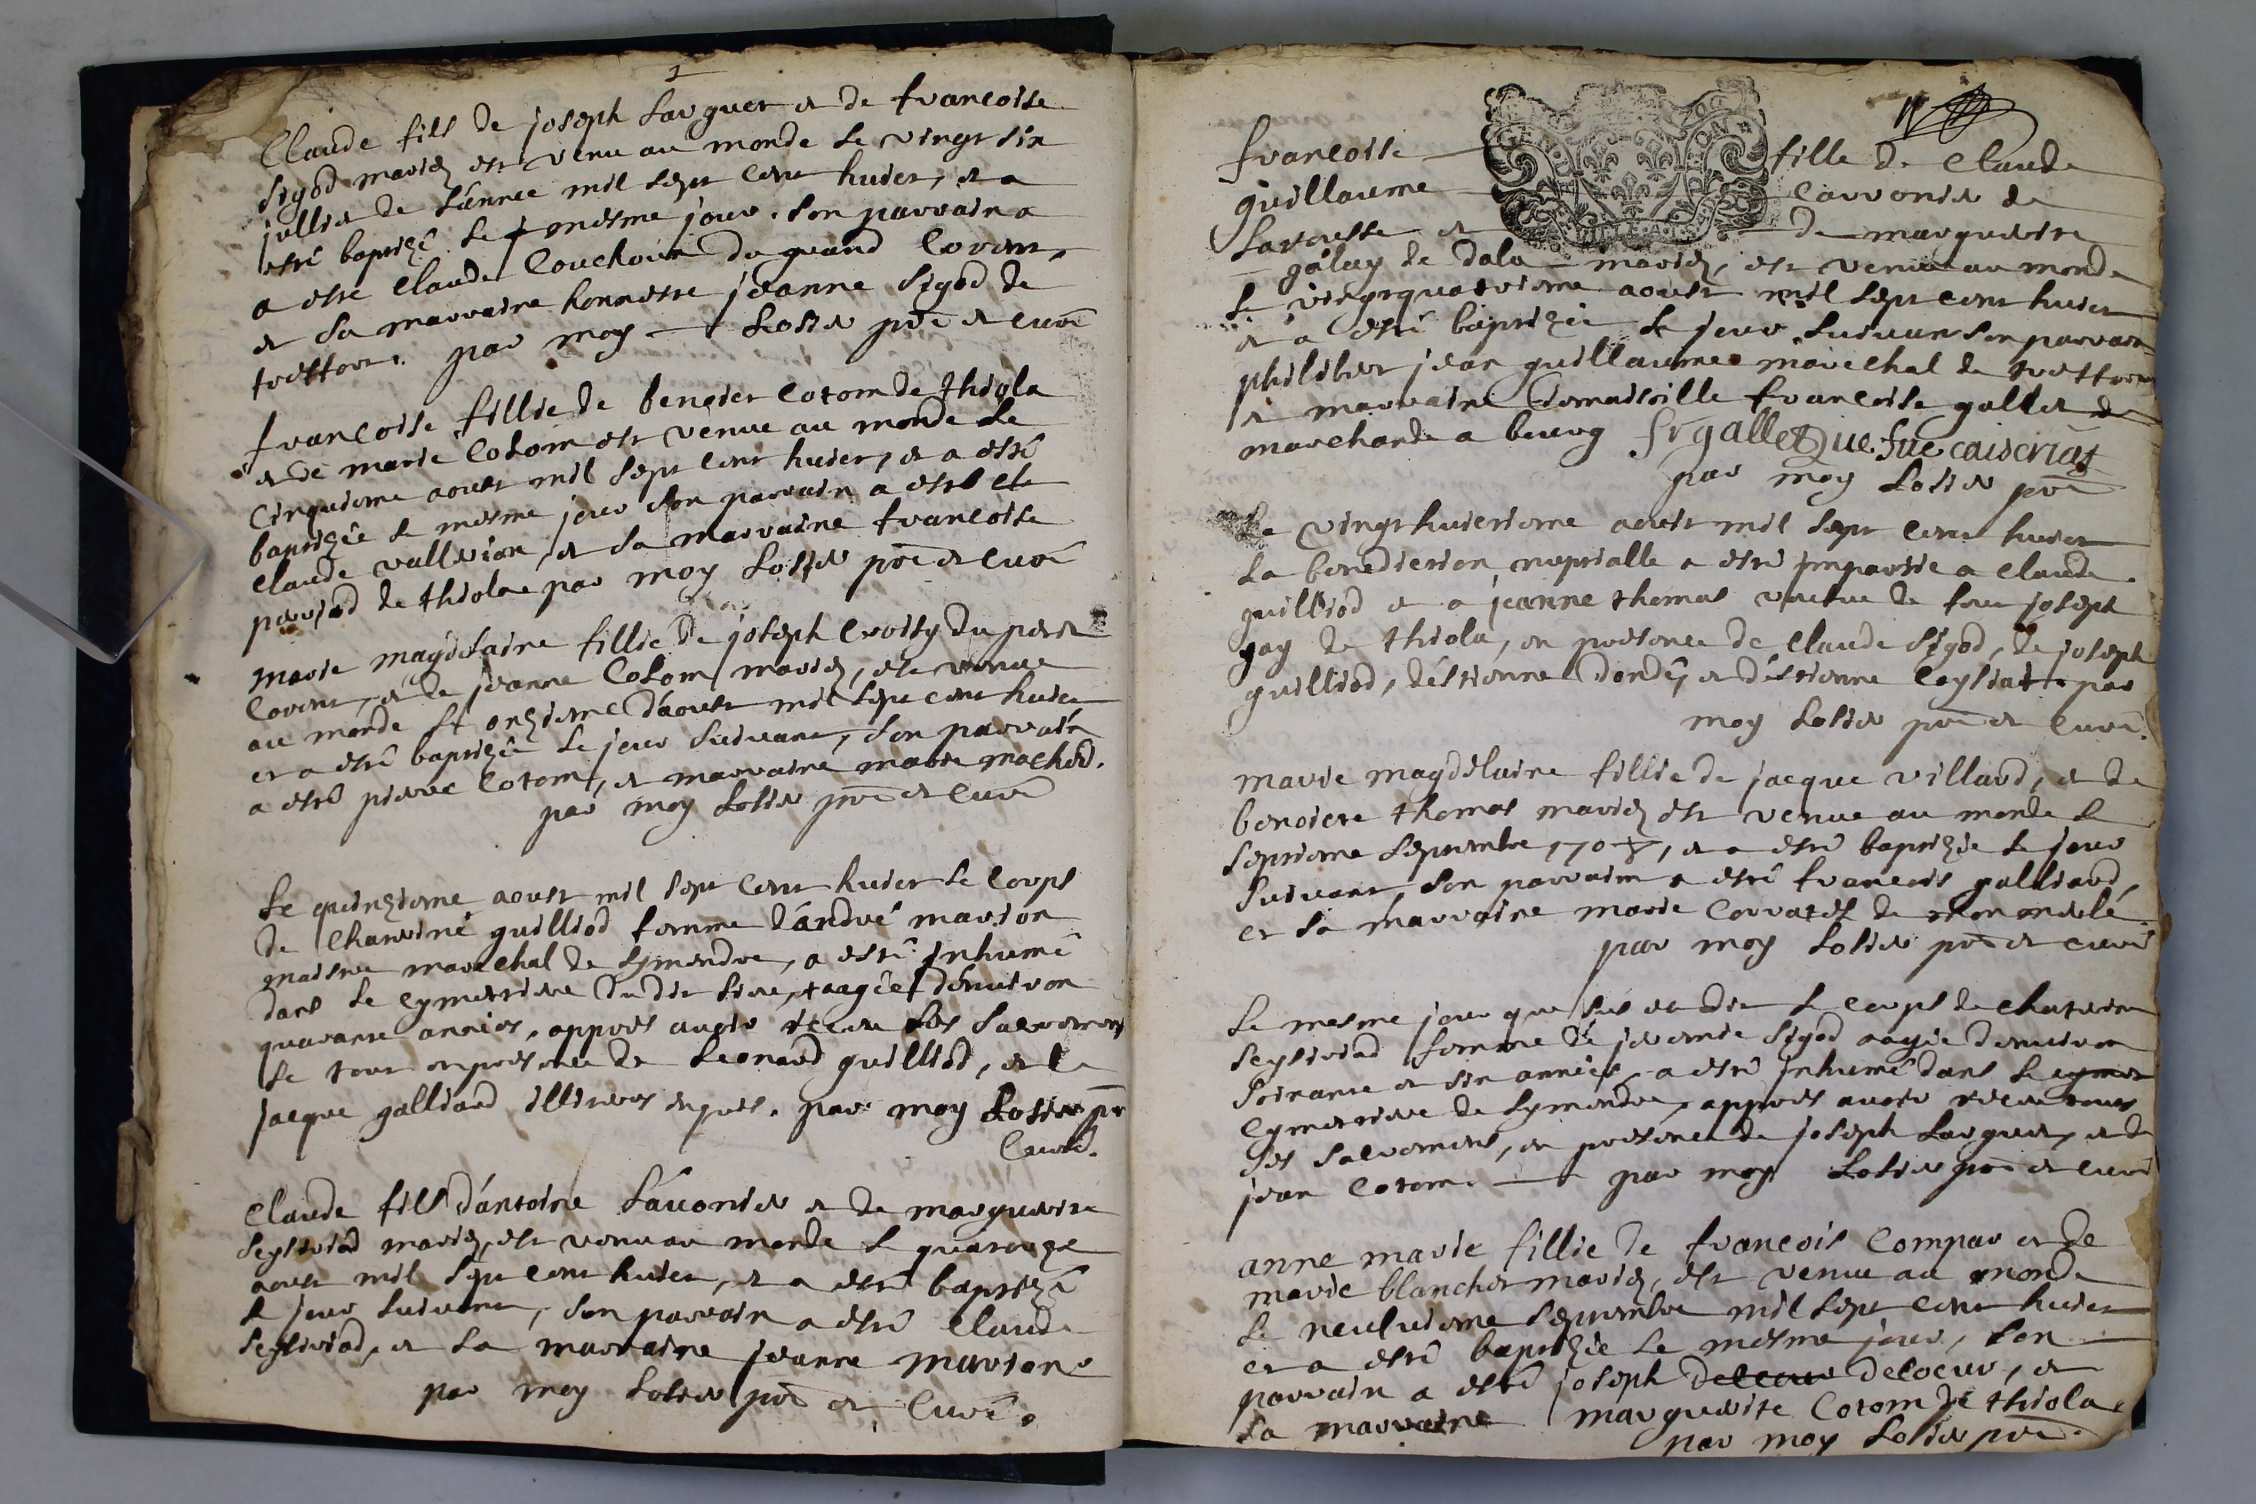 1
Claude fils de joseph Larguer et de francoise
sigod mariez est venu au monde le vingt six
jullier de l'année mil sept cent huict, et a
esté baptizé le mesme jour. son parrain a
a esté Claude Couchoux du grand Corent,
et sa marraine honneste jeanne sigod de
treffort. par moy Losier pre et curé
françoise fillie de benoict Cotom de thiola
et de marie Colom est venue au monde le
cinquieme aoust mil sept cent huict, et a esté
baptizée le mesme jour son parrain a esté
claude vallerian, et sa marraine francoise
de thiola par moy Losier pre et curé
marie magdelaine fillie de joseph croisy du petit
Corent, et de jeanne Colom mariez, est venue
au monde le onzieme d'aoust mil sept cent huict
et a esté baptizée le jour suivant, son parrain
a esté pierre Cotom, et marraine marie mochod.
par moy Losier pre et curé
Le quinzieme aoust mil sept cent huict le corps
de guilliod femme d'andré marion
maistre marechal de symendre, a esté inhumé
dans le cymettiere dudit lieu, aagée d'environ
quarante années, apprès avoir receu les sacremens
le tout en presence de Leonard guilliod, et de
jacque galliard illiterés enquis. par moy Losier pr
curé.
Claude fils d'antoine Lavorier et de marguerite
seytiriad mariez, est venu au monde le quatorze
aoust mil sept cent huict, et a esté baptizé
le jour suivant, son parrain a esté claude
seytiriad, et sa marraine jeanne marion.
par moy Losier pre et curé.
francoise fille de Claude
guillaume carronier de
et de marguerite
galay de dala mariez, est venue au monde
le vingtquatrieme aoust mil sept cent huict
et a esté baptizée le jour suivant son parrain
philibert jean guillaume marechal de treffort
et marraine demaiselle francoise gallet
marchande a bourg fr gallet ue. fue caiscriat
par moy Losier pre
Le vingt huictieme aoust mil sept cent huict
la benediction nuptialle a esté impartie a claude
guilliod et a jeanne thomas veufue de feu joseph
gay de thiola, en presence de claude sigod, de joseph
guilliod, d'estienne dondey et d'estienne Ceyliat. par
moy Losier pre et curé.
marie magdelaine fillie de jacque villard, et de
benoiste thomas mariez est venue au monde le
septieme septembre 1708, et a esté baptizée le jour
suivant, son parrain a esté francois galliard,
et sa marraine marie Corratez de
par moy Losier pre et curé
Le mesme jour que sus est dit le corps de
seytiriad femme de jeremie sigod aagée d'environ
soixante et six années, a esté inhumé dans le cymet
cymettiere de symendre, apprès avoir receu tous
ses sacremens, en presence de joseph Larguer, et de
jean Cotom. par moy Losier pre et curé
anne marie fillie de francois Compar et de
marie blanchet mariez, est venue au monde
le neufvieme septembre mil sept cent huict
et a esté baptizée le mesme jour, son
parrain a esté joseph delcour delcour, et
sa marraine marguerite Cotom de thiola
par moy Losier pre.